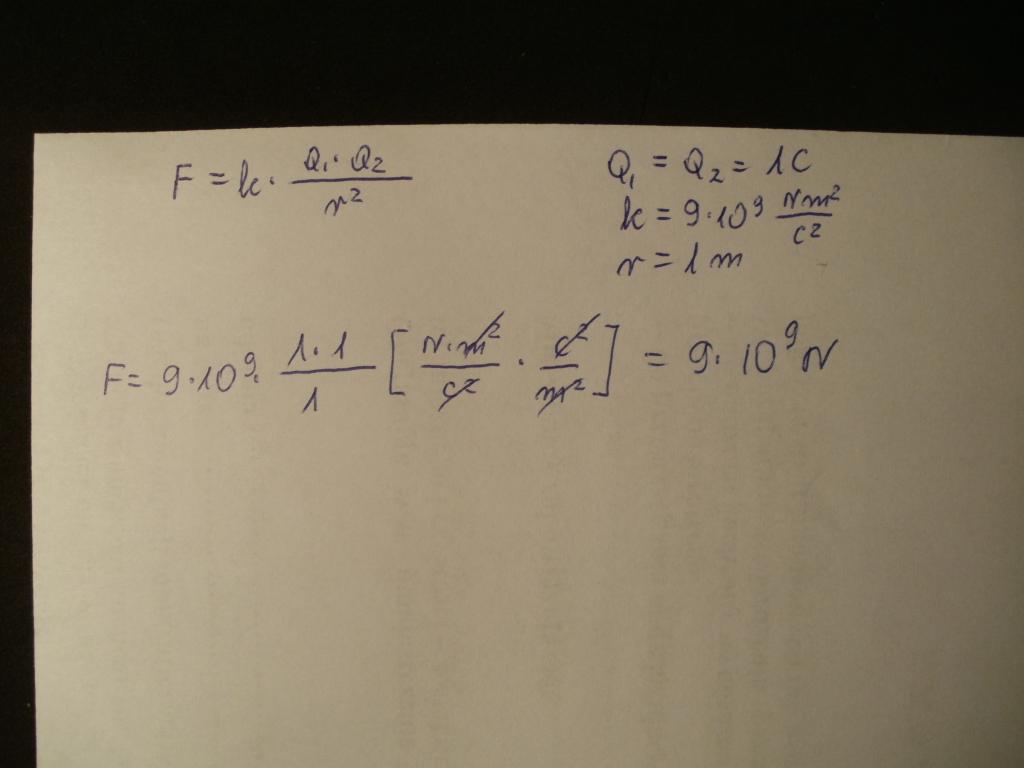 F = k · Q₁ · Q₂ / r²
Q₁ = Q₂ = 1C
k = 9 · 10⁹ Nm² / C²
r = 1 m
F = 9 · 10⁹ · 1 · 1 / 1 [ N · m² / C² · C² / m² ] = 9 · 10⁹ N